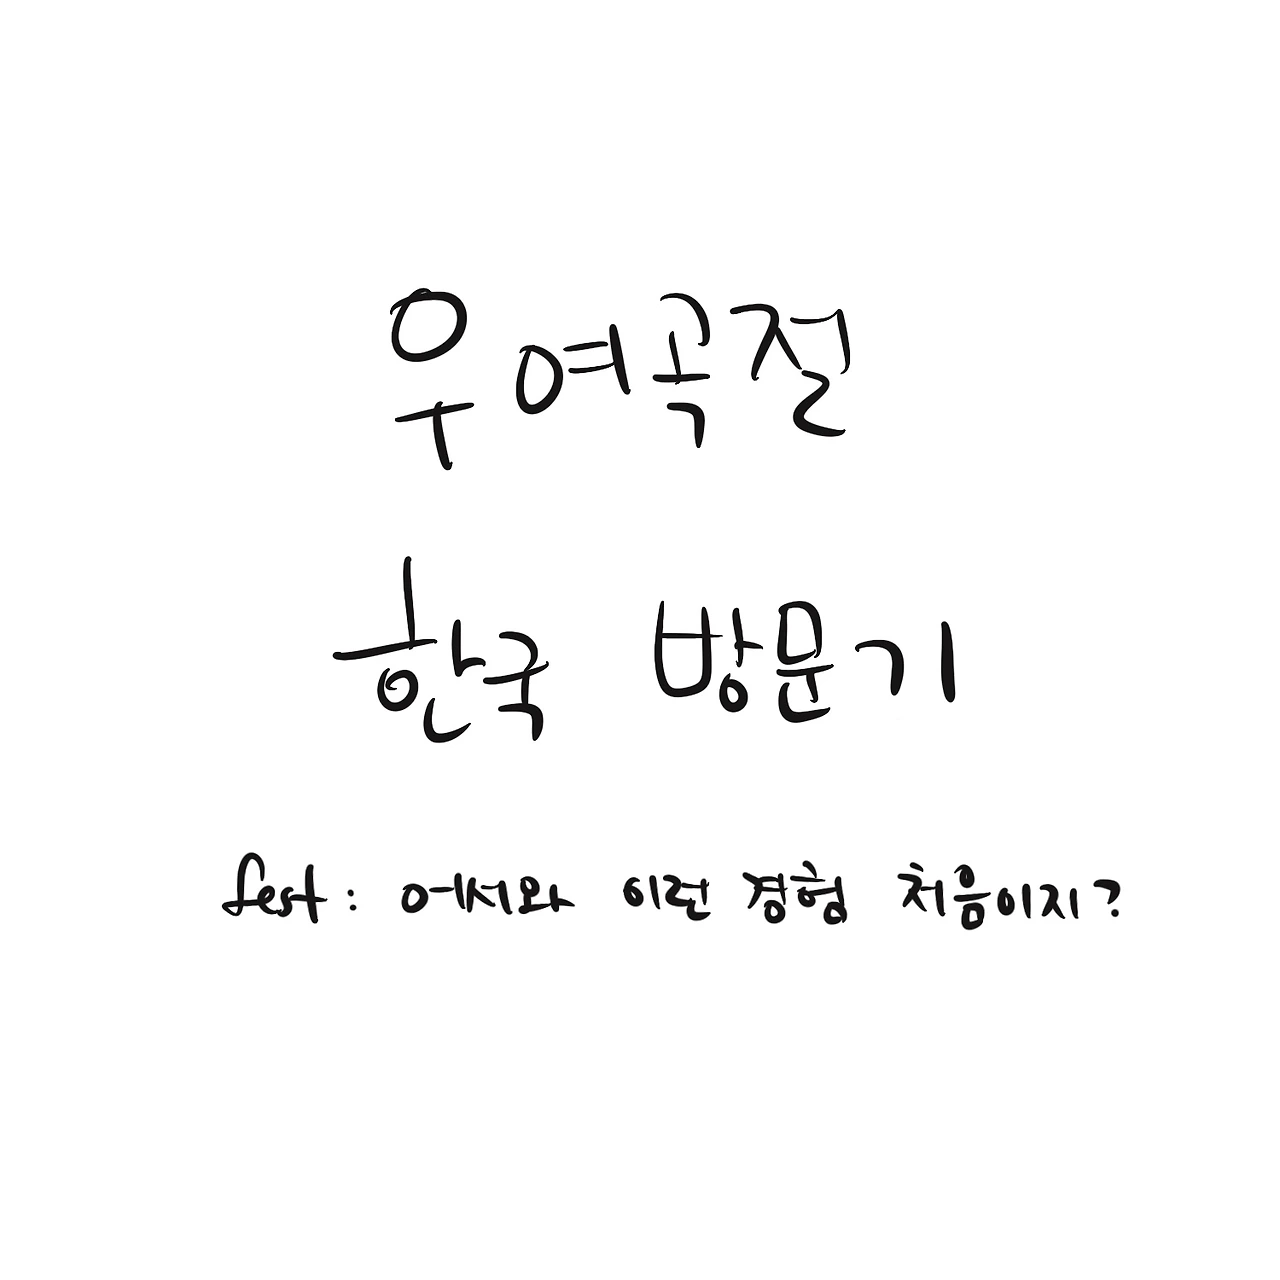 우여곡절
한국 방문기
fest: 어서와 이런 경험 처음이지?